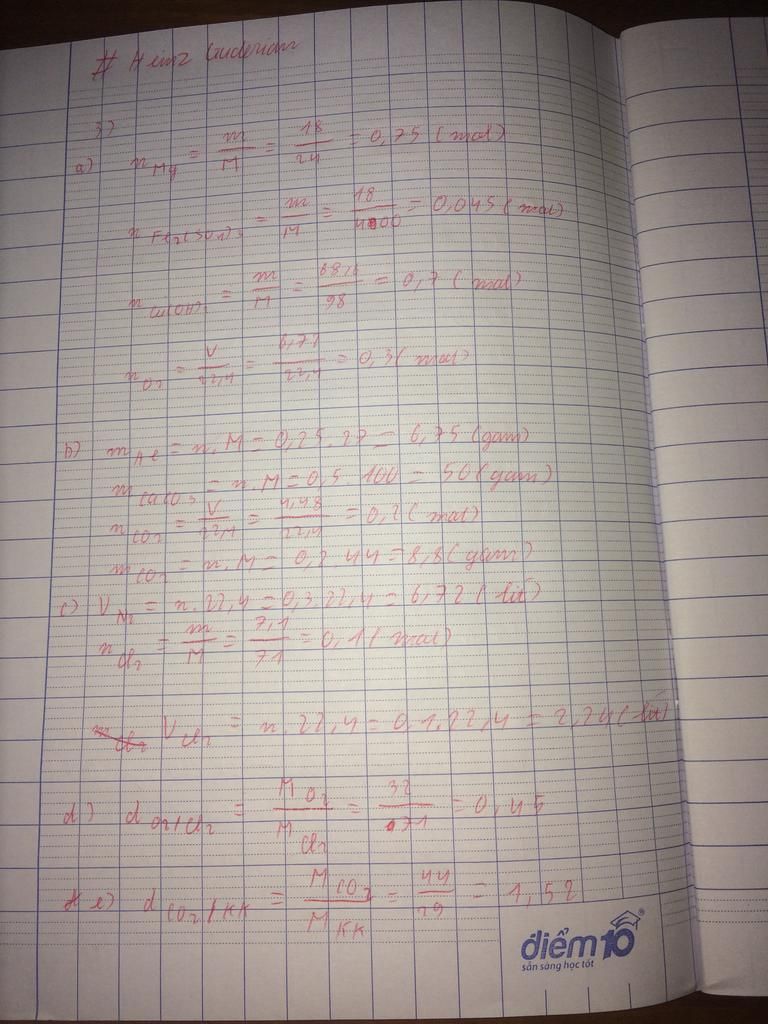 # Heinz Guderian
3)
a) n Mg = m/M = 18/24 = 0,75 (mol)
n Fe2(SO4)3 = m/M = 18/400 = 0,045 (mol)
n Cu(OH)2 = m/M = 68,6/98 = 0,7 (mol)
n O2 = V/22,4 = 6,72/22,4 = 0,3 (mol)
b) m Al = n.M = 0,25.27 = 6,75 (gam)
m CaCO3 = n.M = 0,5.100 = 50 (gam)
n CO2 = V/22,4 = 4,48/22,4 = 0,2 (mol)
m CO2 = n.M = 0,2.44 = 8,8 (gam)
c) V N2 = n.22,4 = 0,3.22,4 = 6,72 (lít)
n Cl2 = m/M = 7,1/71 = 0,1 (mol)
V Cl2 = n.22,4 = 0,1.22,4 = 2,24 (lít)
d) d O2/Cl2 = M O2/M Cl2 = 32/71 = 0,45
e) d CO2/KK = M CO2/M KK = 44/29 = 1,52
điểm10
sẵn sàng học tốt